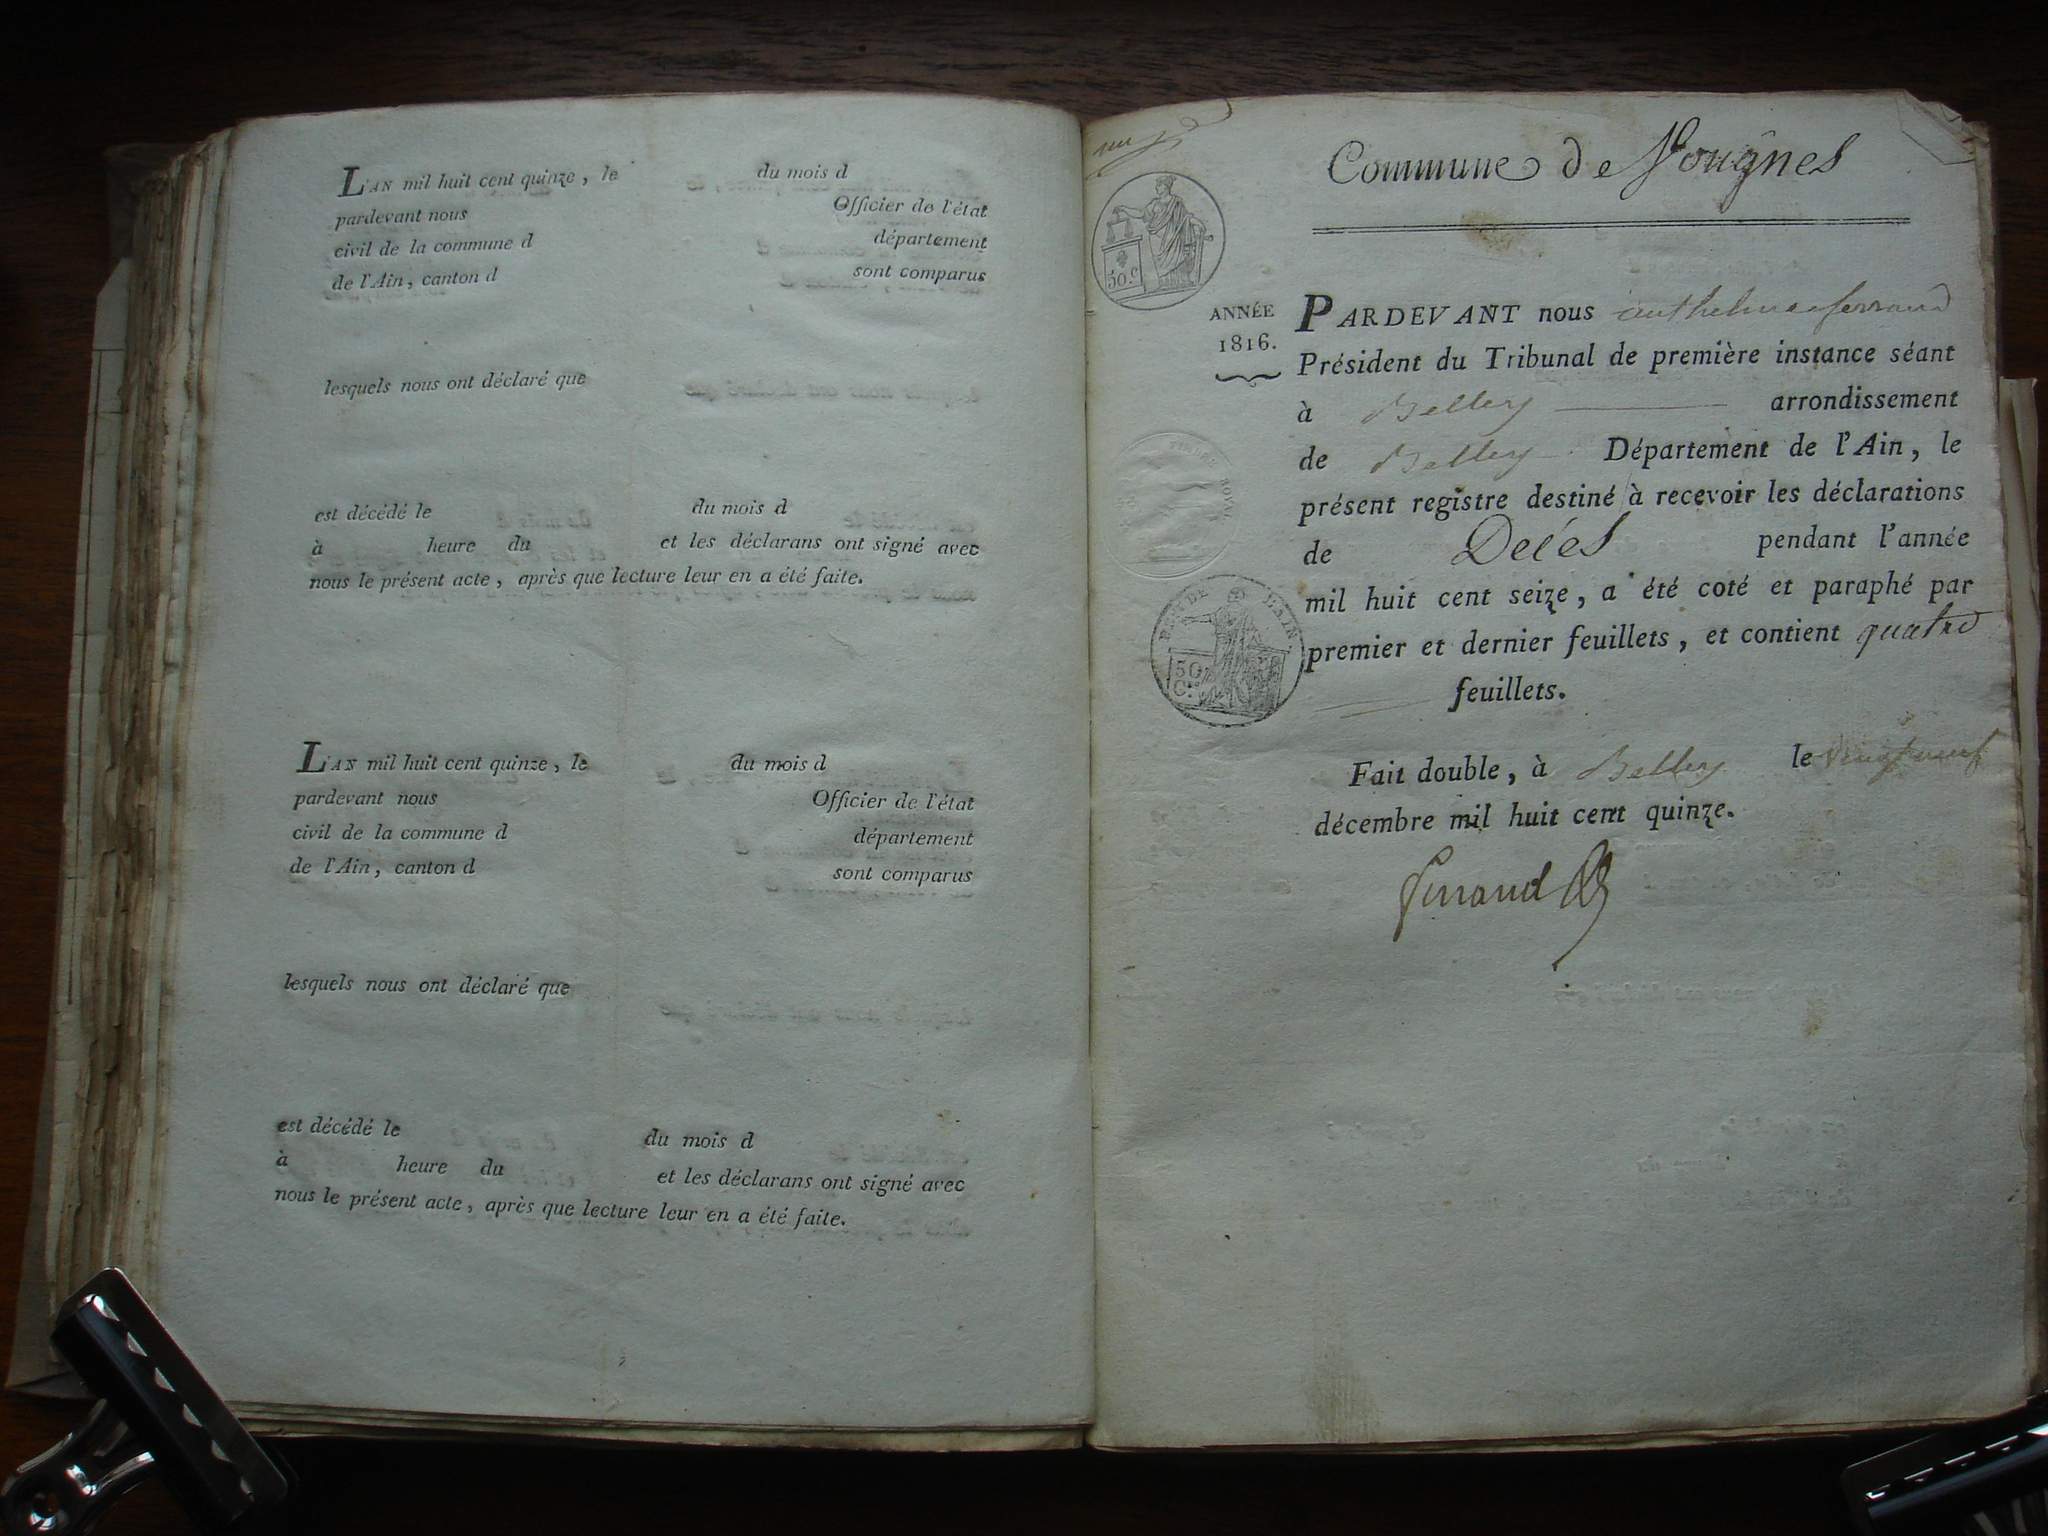 L'AN mil huit cent quinze, le du mois d
pardevant nous Officier de l'état
civil de la commune d département
de l'Ain, canton d sont comparus
lesquels nous ont déclaré que
est décédé le du mois d
à heure du et les déclarans ont signé avec
nous le présent acte, après que lecture leur en a été faite.
L'AN mil huit cent quinze, le du mois d
pardevant nous Officier de l'état
civil de la commune d département
de l'Ain, canton d sont comparus
lesquels nous ont déclaré que
est décédé le du mois d
à heure du et les déclarans ont signé avec
nous le présent acte, après que lecture leur en a été faite.
Commune de Vougnes
50.c
ANNÉE
1816.
TIMBRE ROYAL
DEPT DE L'AIN
50
C.
PARDEVANT nous anthelme ferrand
Président du Tribunal de première instance séant
à Belley arrondissement
de Belley Département de l'Ain, le
présent registre destiné à recevoir les déclarations
de Décès pendant l'année
mil huit cent seize, a été coté et paraphé par
premier et dernier feuillets, et contient quatre
feuillets.
Fait double, à Belley le vingt neuf
décembre mil huit cent quinze.
ferrand